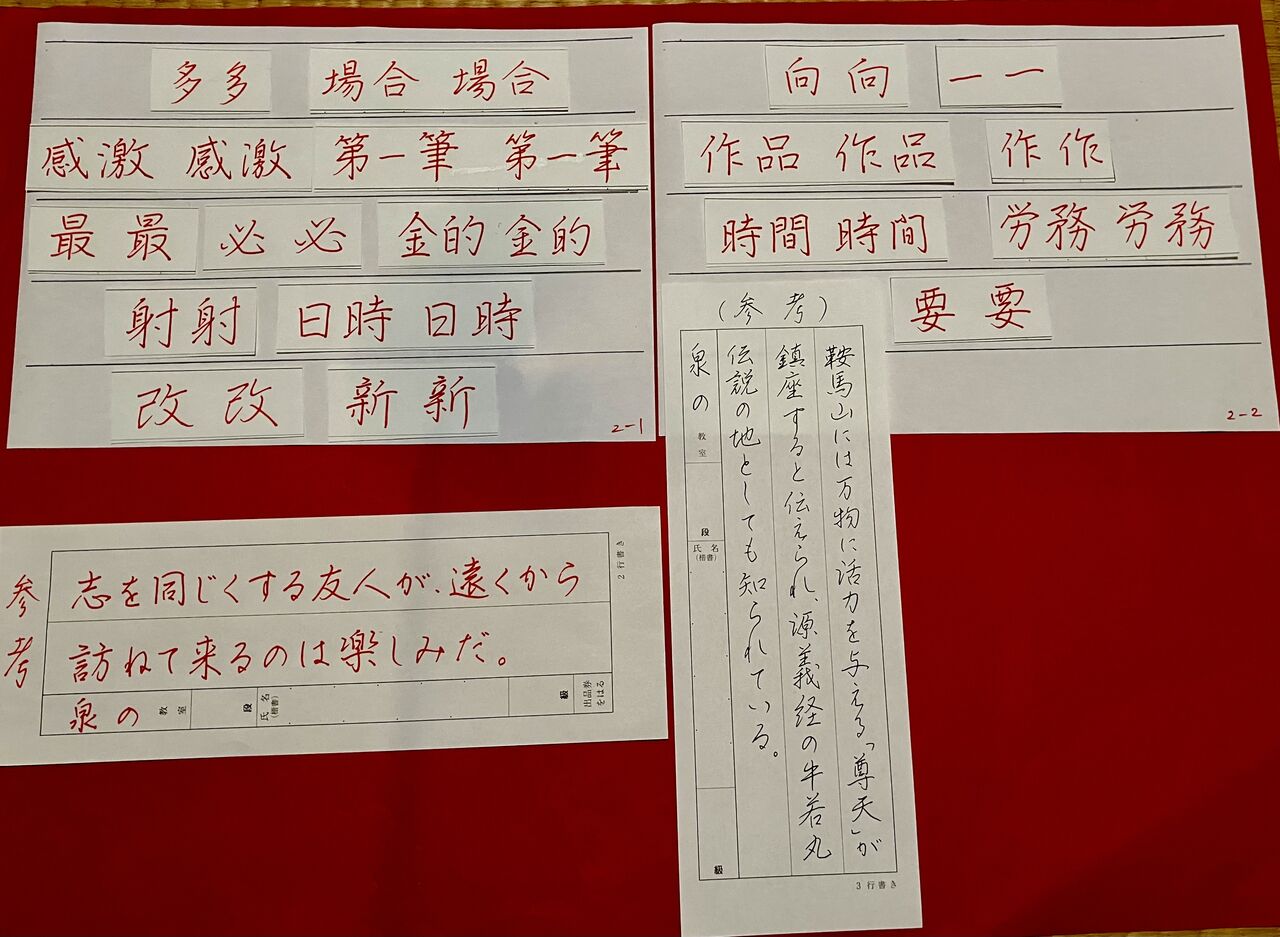 多多 場合 場合
感激 感激 第一筆 第一筆
最 最 必 必 金的 金的
射射 日時 日時
改 改 新 新
2-1
向 向 一 一
作品 作品 作作
時間 時間 労務 労務
要 要
2-2
(参考)
鞍馬山には万物に活力を与える「尊天」が
鎮座すると伝えられ、源義経の牛若丸
伝説の地としても知られている。
泉の 教室 段 氏名(楷書) 級
3行書き
参考
志を同じくする友人が、遠くから
訪ねて来るのは楽しみだ。
泉の 教室 段 氏名(楷書) 級 出品券をはる
2行書き